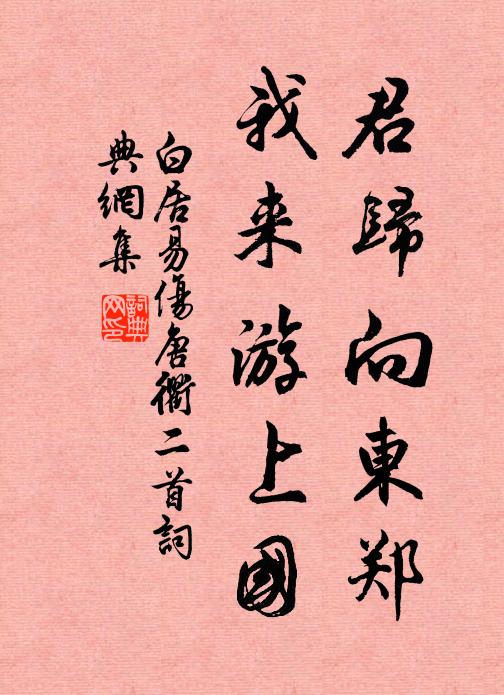 君歸向東郑
我来游上國
白居易傷唐衢二首詞
典網集
詞典网印